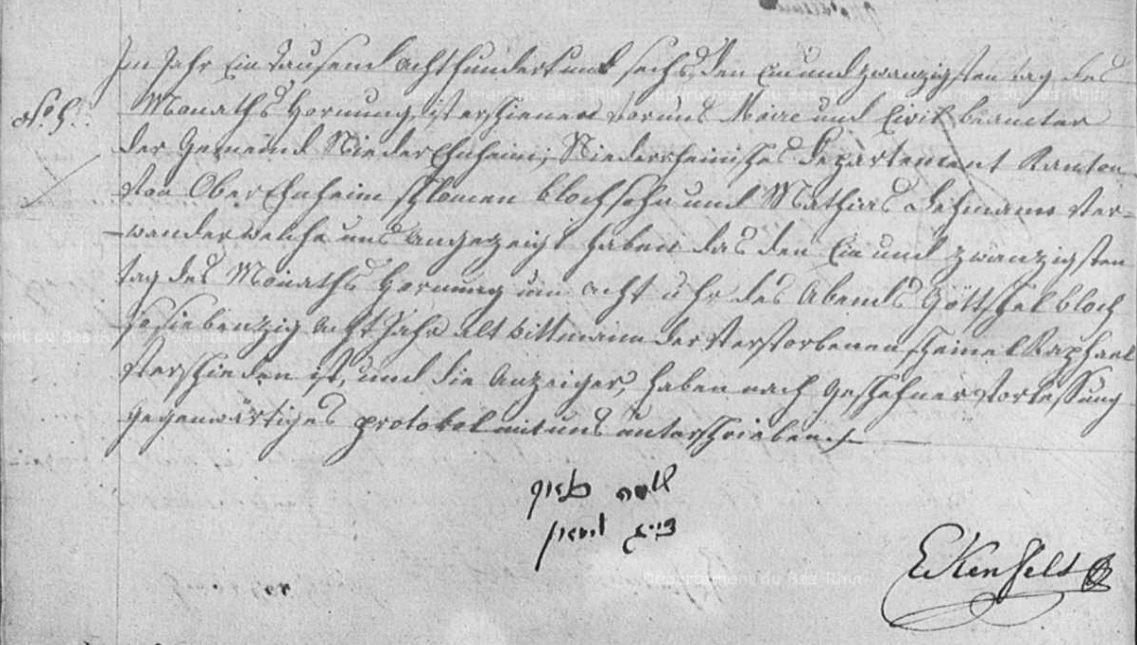 Im Jahr Ein Tausend achthundert und sechs, den Ein und zwanzigsten tag des
No. 5.
Monaths Hornung, ist erschienen vor uns Maire und Civil beamter
der Gemeind NiederEhnheim, Niederrheinisches departement Kanton
von OberEhnheim schlomen bloch sohn und Mathias Lehmann Ver=
wander welche uns angezeigt haben das den Ein und zwanzigsten
tag des Monaths Hornung um acht uhr des Abends Göttschel bloch
so siebenzig acht Jahr alt wittmann der verstorbenen scheinel Raphael
Verschieden ist, und die Anzeiger, haben nach geschehner Vorlesung
gegenwärtiges protokol mit uns unterschrieben
שלמה בלאך
Eckenfelt